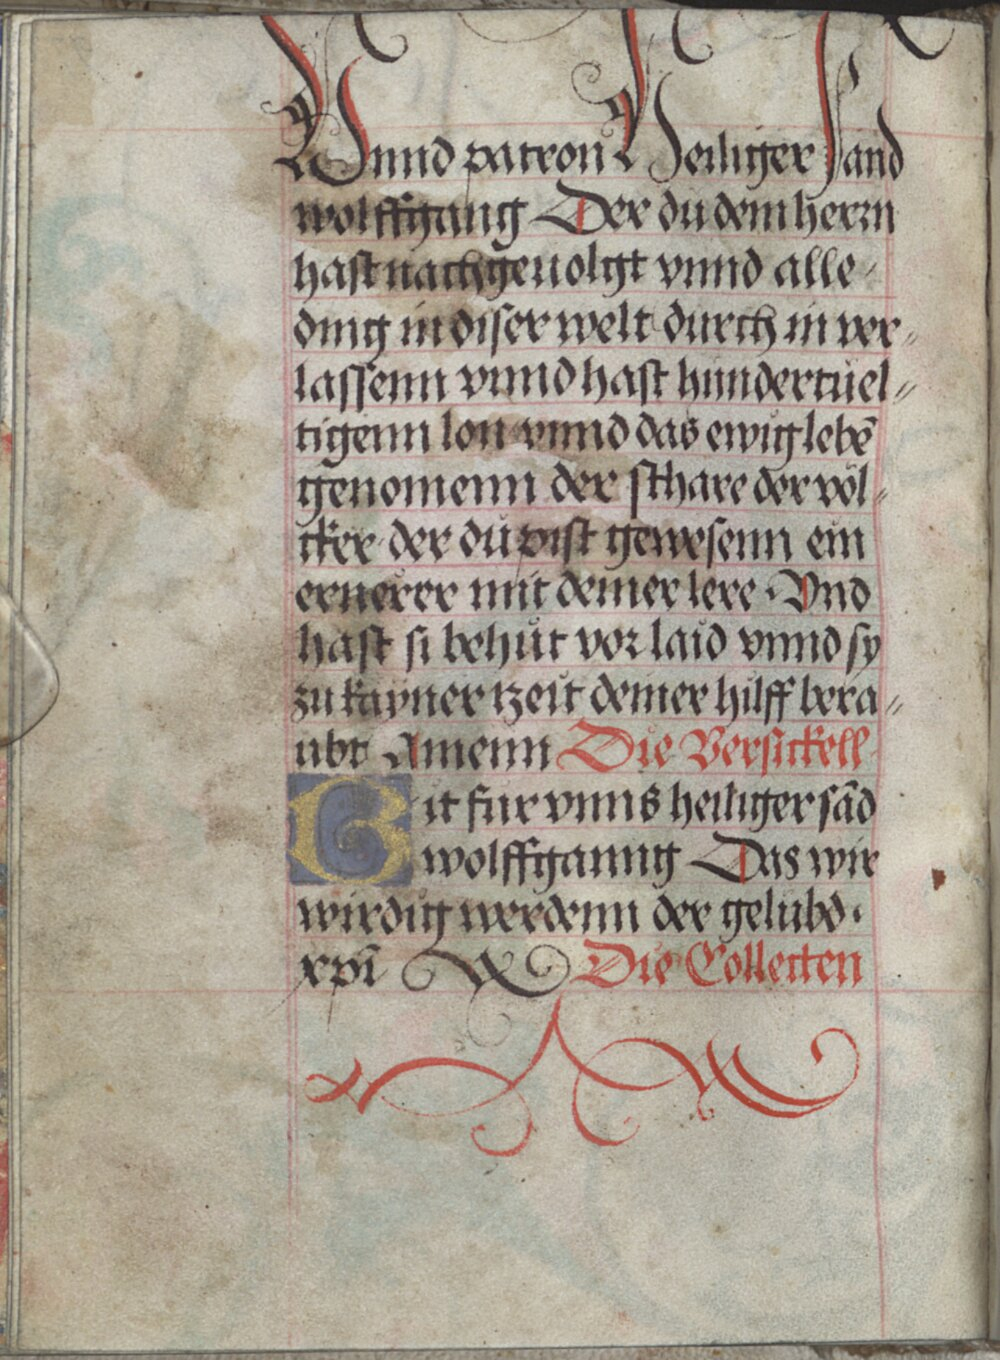 Vnnd patron Heiliger sand
wolffgang Der du dem herrn
hast nachgeuolgt vnnd alle
ding in diser welt durch in ver⸗
lassenn vnnd hast hundertuel⸗
tigenn lon vnnd das ewig lebē
genomenn der schare der völ⸗
cker der du pist gewesenn ein
ernerer mit deiner lere · Vnd
hast si behüt vor laid vnnd sy
zu kayner tzeit deiner hilff bera⸗
ubt Amenn Die Versickell
Bit fur vnns heiliger sād
wolffganng Das wir
wirdig werdenn der gelubd ·
xpī Die Collecten